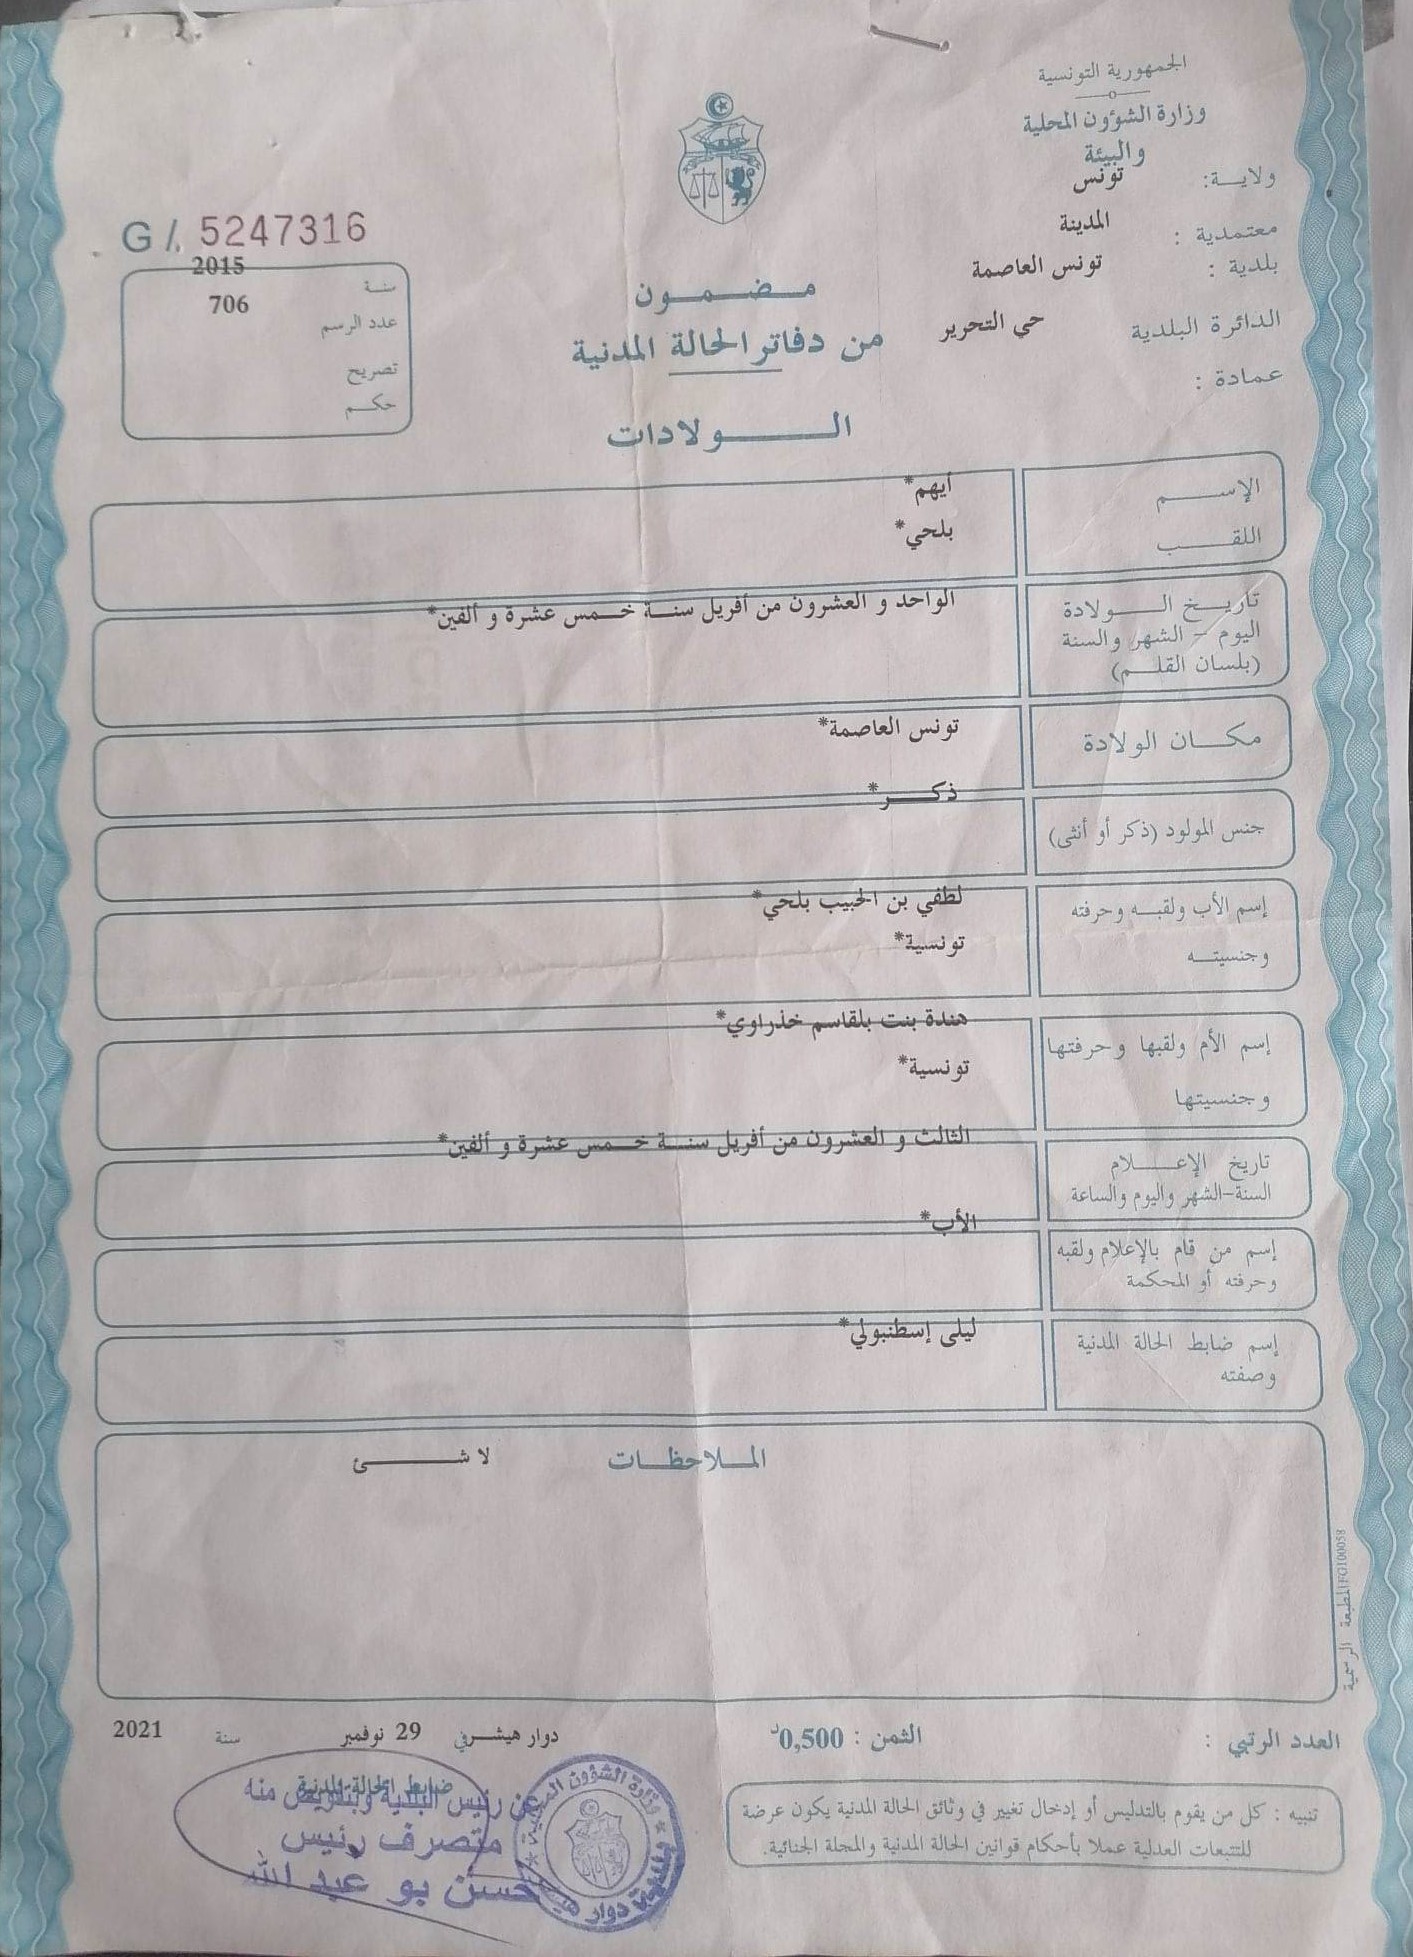 الجمهورية التونسية
وزارة الشؤون المحلية
والبيئة
ولايـــة: تونس
معتمدية : المدينة
بلدية : تونس العاصمة
الدائرة البلدية حي التحرير
عمادة :
G /. 5247316
سنة 2015
عدد الرسم 706
تصريح
حكم
مـضـمـون
من دفاتر الحالة المدنية
الـــولادات
الإســـم أيهم*
اللقـــب بلحي*
تاريـــخ الـــولادة الواحد و العشرون من أفريل سنـــة خـــمس عشرة و ألفين*
اليوم – الشهر والسنة
(بلسان القلـــم)
مكـــان الولادة تونس العاصمة*
جنس المولود (ذكر أو أنثى) ذكـــر*
إسم الأب ولقبـــه وحرفته لطفي بن الحبيب بلحي*
وجنسيتـــه تونسية*
إسم الأم ولقبها وحرفتها هندة بنت بلقاسم خذراوي*
وجنسيتها تونسية*
تاريخ الإعـــلام الثالث و العشرون من أفريل سنـــة خـــمس عشرة و ألفين*
السنة-الشهر واليوم والساعة
إسم من قام بالإعلام ولقبه الأب*
وحرفته أو المحكمة
إسم ضابط الحالة المدنية ليلى إسطنبولي*
وصفته
المـــلاحظـــات لا شـــئ
المطبعة الرسمية FG100058
العدد الرتبي : الثمن : 0,500د دوار هيشر في 29 نوفمبر سنة 2021
ضابط الحالة المدنية
عن رئيس البلدية وبتفويض منه
متصرف رئيس
حسن بو عبد الله
وزارة الشؤون المحلية
بلدية دوار هيشر
تنبيه : كل من يقوم بالتدليس أو إدخال تغيير في وثائق الحالة المدنية يكون عرضة
للتتبعات العدلية عملا بأحكام قوانين الحالة المدنية والمجلة الجنائية.